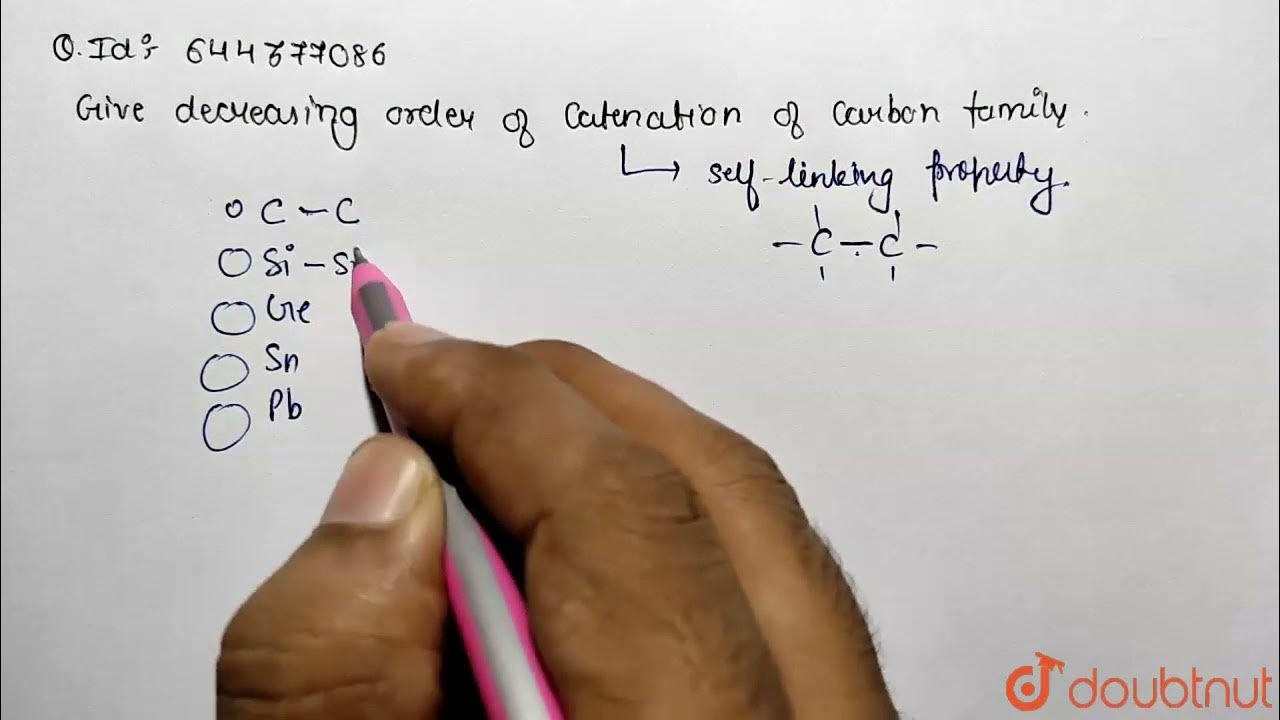 Q.Id:- 644377086
Give decreasing order of Catenation of Carbon family.
↳ self-linking property.
C - C
Si - Si
Ge
Sn
Pb
- C - C -
doubtnut